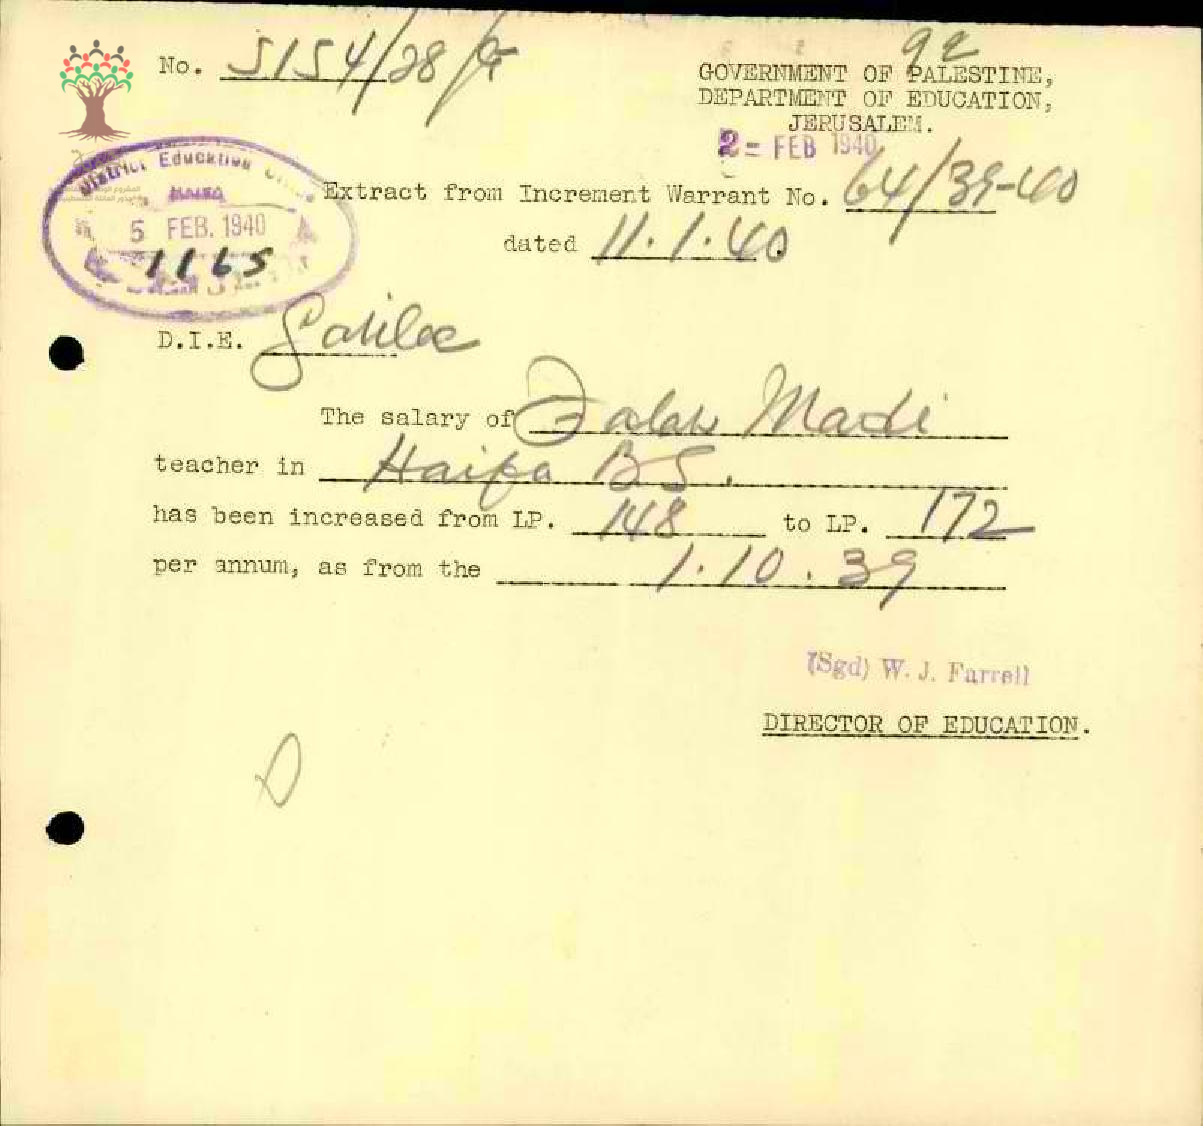 92
No. 5154/28/G
GOVERNMENT OF PALESTINE,
DEPARTMENT OF EDUCATION,
JERUSALEM.
2 - FEB 1940
District Education Office
HAIFA
5 FEB. 1940
1165
Extract from Increment Warrant No. 64/39-40
dated 11.1.40.
D.I.E. Galilee
The salary of Falah Madi
teacher in Haifa B S.
has been increased from LP. 148 to LP. 172
per annum, as from the 1.10.39
(Sgd) W. J. Farrell
DIRECTOR OF EDUCATION.